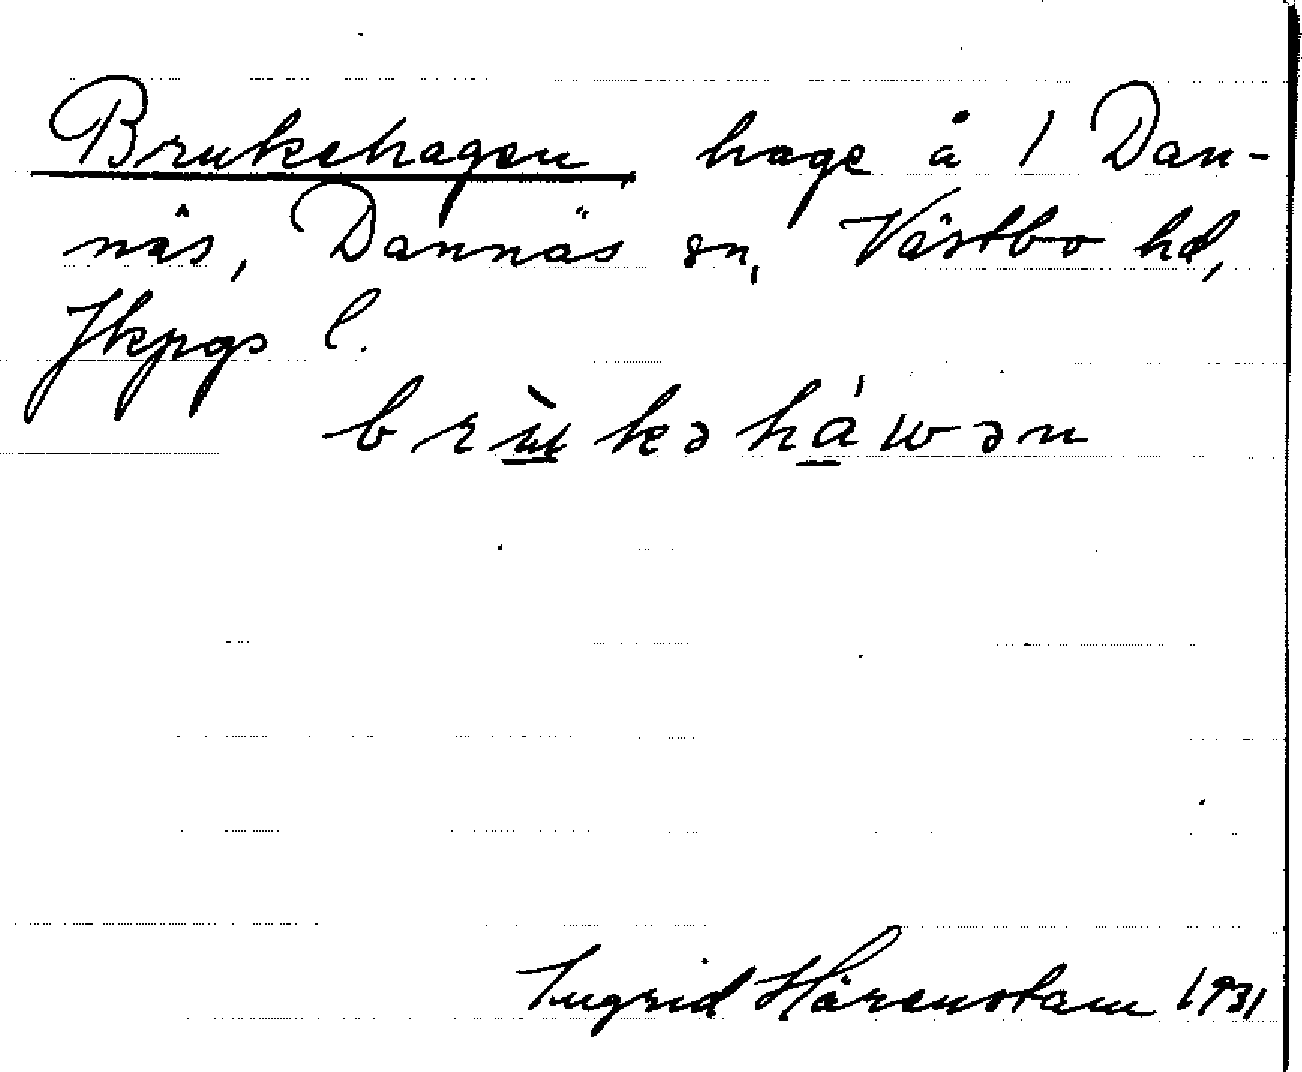 Brukehagen hage å 1 Dan-
näs, Dannäs sn, Västbo hd,
Jkpgs l.
brùkəháwən
Ingrid Härenstam 1931